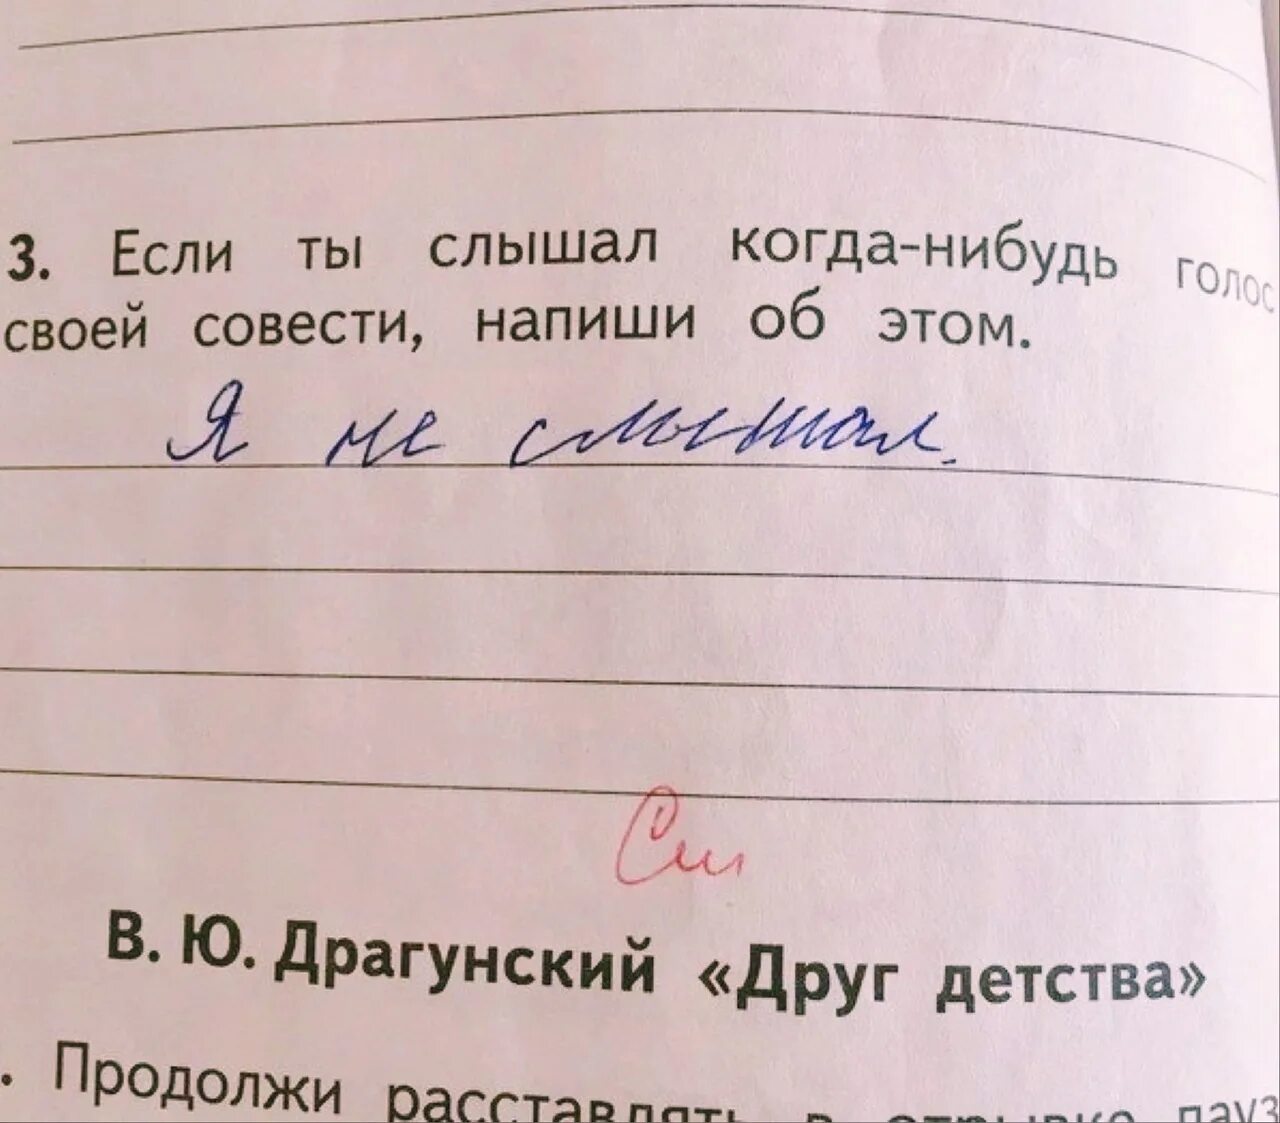 3. Если ты слышал когда-нибудь голос
своей совести, напиши об этом.
Я не слышал.
См
В. Ю. Драгунский «Друг детства»
. Продолжи расставлять в отрывке пауз